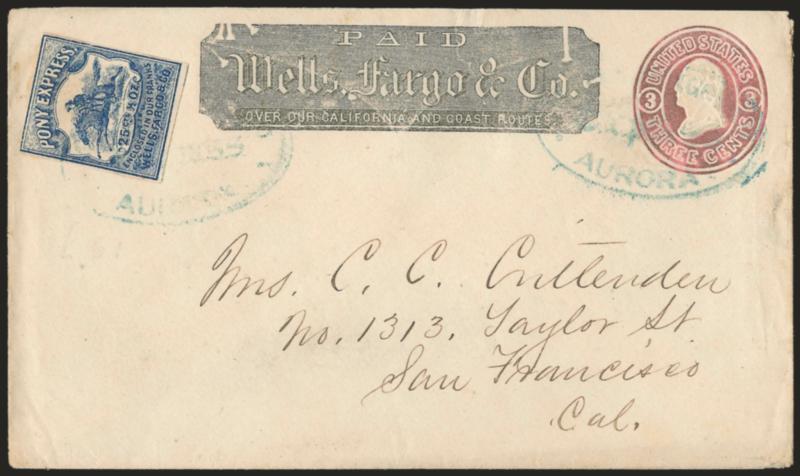 PONY EXPRESS
25 Cts ½ OZ.
ENCLOSED IN OUR FRANKS
WELLS, FARGO & CO.
PAID
Wells, Fargo & Co.
OVER OUR CALIFORNIA AND COAST ROUTES.
UNITED STATES
3 3
THREE CENTS
AURORA
Mrs. C. C. Crittenden
No. 1313. Taylor St
San Francisco
Cal.